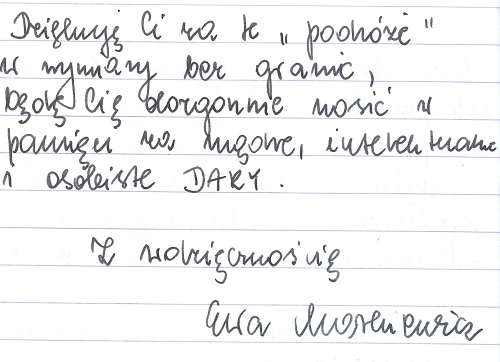 Dziękuję Ci za tę „podróż"
w wymiary bez granic,
będę Cię dozgonnie nosić w
pamięci za mądre, intelektualne
i osobiste DARY.
Z wdzięcznością
Ewa